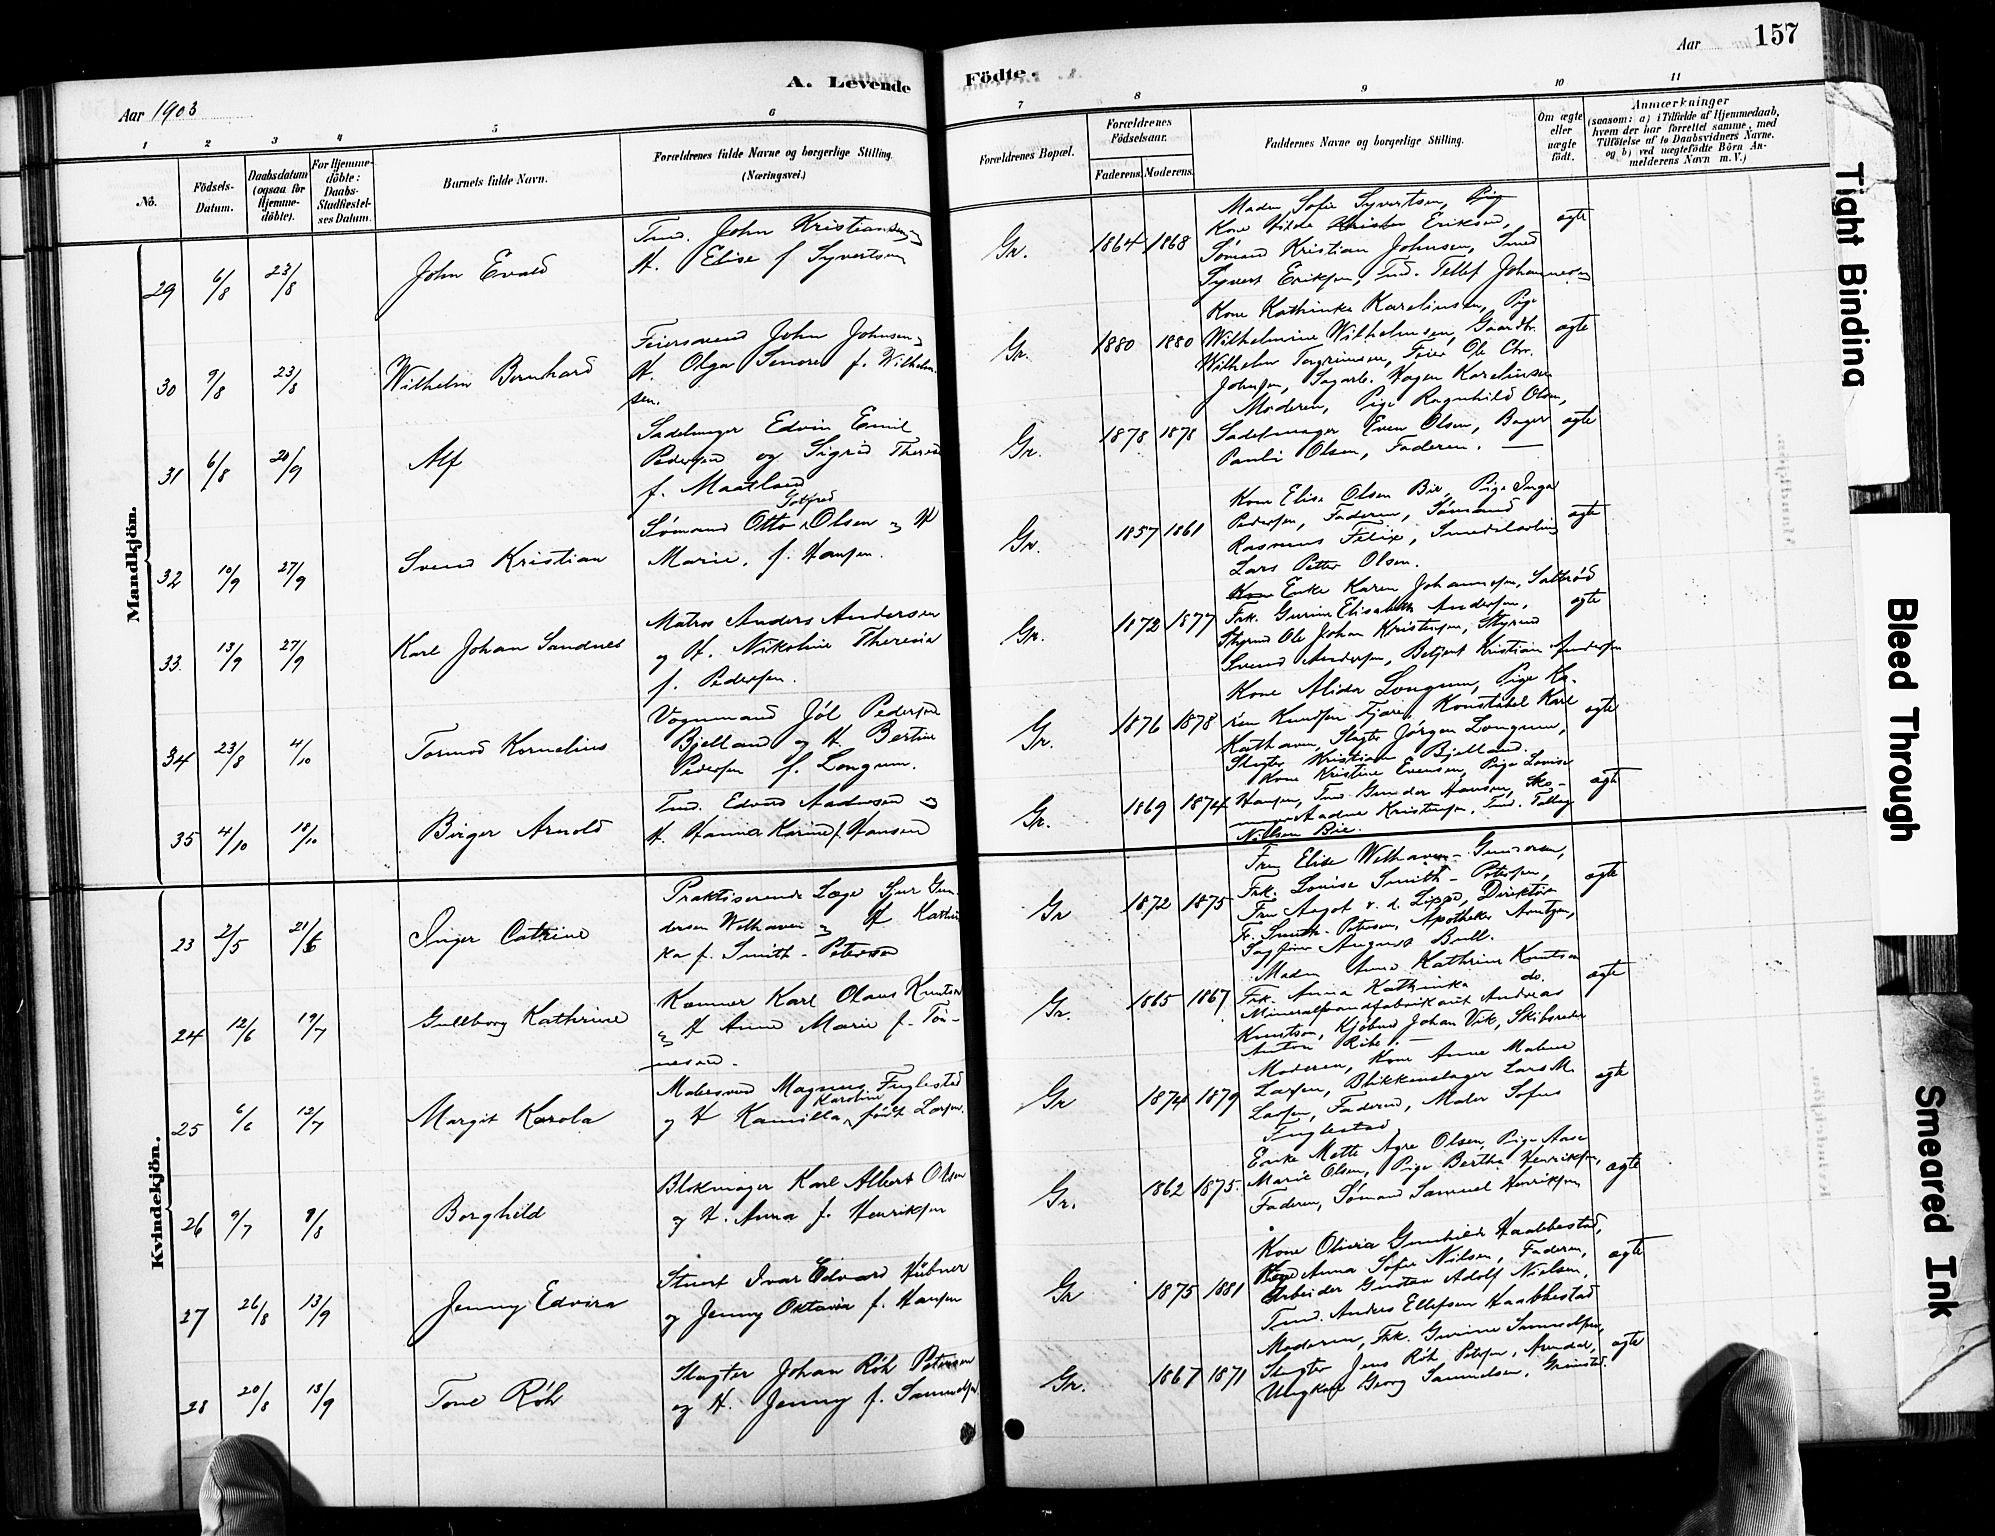 A. Levende
Födte.
Aar 157
Aar 1903
1 2 3 4 5 6 7 8 9 10 11
No.
Födsels-
Datum.
Daabsdatum
(ogsaa for
Hjemme-
döbte).
For Hjemme-
döbte:
Daabs-
Stadfæstel-
ses Datum.
Barnets fulde Navn.
Forældrenes fulde Navne og borgerlige Stilling.
(Næringsvei.)
Forældrenes Bopæl.
Forældrenes
Födselsaar.
Faderens. Moderens.
Faddernes Navne og borgerlige Stilling.
Om ægte
eller
uægte
födt.
Anmærkninger
(saasom: a) i Tilfælde af Hjemmedaab,
hvem der har forrettet samme, med
Tilföielse af to Daabsvidners Navne.
og b) ved uægtefödte Börn An-
melderens Navn m. V.)
Mandkjön.
29 6/8 23/8 John Evald
Tmd. John Kristiansen og
H. Elise f Syvertsen
Gr. 1864 1868
Moder, Sofie Syvertsen, Pig
Kone Hilda Eriksen,
Sømand Kristian Johnsen, Smed
Syvert Eriksen, Tmd. Tellef Johannesen
ægte
30 9/8 23/8 Wilhelm Bernhard
Feiersvend John Johnsen og
H. Olga Senore f. Wilhelm-
sen.
Gr. 1880 1880
Kone Kathinka Karelinsen, Pige
Wilhelmine Wilhelmsen, Gaardbr.
Wilhelm Torgrimsen, Feier Ole Chr.
Johnsen, Sagarb. Hagen Karelinsen
ægte
31 6/8 20/9 Alf
Sadelmager Edvin Emil
Pedersen og Sigrid Therese
f. Maatland
Gr. 1878 1878
Moderen, Pige Ragnhild Olsen,
Sadelmager Even Olsen, Bager
Pauli Olsen, Faderen.
ægte
32 10/9 27/9 Svend Kristian
Gotfred
Sømand Otto Olsen og H
Marie, f. Hansen.
Gr. 1857 1861
Kone Elise Olsen Bie, Pige Inga
Pedersen, Faderen, Sømand
Rasmus Felix, Smedelærling
Lars Petter Olsen.
ægte
33. 13/9 27/9 Karl Johan Sandnes
Matros Anders Andersen
og H. Nikoline Theresia
f. Pedersen.
Gr. 1872 1877
Kone Enke Karen Johannesen, Saltrød
Frk. Gurine Elisabeth Andersen,
Styrmd Ole Johan Kristensen, Styrmd
Svend Andersen, Betjent Kristian Andersen
ægte
34 23/8 4/10 Tormod Kornelius
Vognmand Joh Pedersen
Bjelland og H. Bertine
Pedersen f. Longum.
Gr. 1876 1878
Kone Alida Longum, Pige Ka-
ren Knudsen Fjære, Konstabel Karl
Kathaven, Slagter Jørgen Longum,
Slagter Kristian Bjelland.
ægte
35 4/10 18/10 Birger Arnold
Tmd. Edvard Aadnesen og
H. Hanna Karine f. Hansen
Gr. 1869 1874
Kone Kristine Evensen, Pige Lovise
Hansen, Tmd. Gunder Hansen, Sko-
mager Aadne Kristensen, Tmd. Tellef
Nilsen Bie.
ægte
Kvindekjön.
23 2/5 21/6 Inger Catrine
Praktiserende Læge Sjur Gun-
dersen Welhaven og H Kathin-
ka f. Smith-Petersen
Gr 1872 1875
Fru Elise Welhaven-Gunnersen,
Frk. Louise Smith-Petersen,
Fru Aagot v. d. Lippe, Direktør
F. Smith-Petersen, Apotheker Arntzen,
Sagfører August Bull.
ægte
24 12/6 19/7 Gullborg Kathrine
Kæmner Karl Olaus Knutson
og H Anne Marie f. Tøn-
nesen.
Gr. 1865 1867
Moder Anne Kathrine Knutson
Frk. Anna Kathinka do.
Mineralvandfabrikant Andreas
Knutson, Kjøbmd Johan Vik, Skibsreder
Anton Ribe.
ægte
25 6/6 12/7 Margit Karola
Malersvend Magnus Fuglestad
Karoline
og H Kamilla født Larsen.
Gr 1874 1879
Moderen, Kone Anne Malene
Larsen, Blikkenslager Lars M.
Larsen, Faderen, Maler Sofus
Fuglestad
ægte
26 9/7 9/8 Borghild
Blokmager Karl Albert Olsen
og H. Anna f. Henriksen
Gr. 1862 1875.
Enke Mette Agre Olsen, Pige Aase
Marie Olsen, Pige Berthe Henriksen,
Faderen, Sømand Samuel Henriksen
ægte
27 26/8 13/9 Jenny Edvira
Stuert Ivar Edvard Hübner
og Jenny Oktavia f. Hansen
Gr 1875 1881
Kone Olivia Gunhilde Haabbestad,
Pige Anna Sofie Nilsen, Faderen,
Arbeider Gustav Adolf Nielsen,
Tmd. Anders Ellefsen Haabbestad
ægte
28 20/8 13/9 Tone Röh
Slagter Johan Röh Petersen
og H. Jenny f. Samuelsen
Gr. 1867 1871
Moderen, Frk. Gurine Samuelsen,
Slagter Jens Röh Petersen, Arendal,
Ungkarl Georg Samuelsen, Grimstd.
ægte
Tight Binding
Bleed Through
Smeared Ink